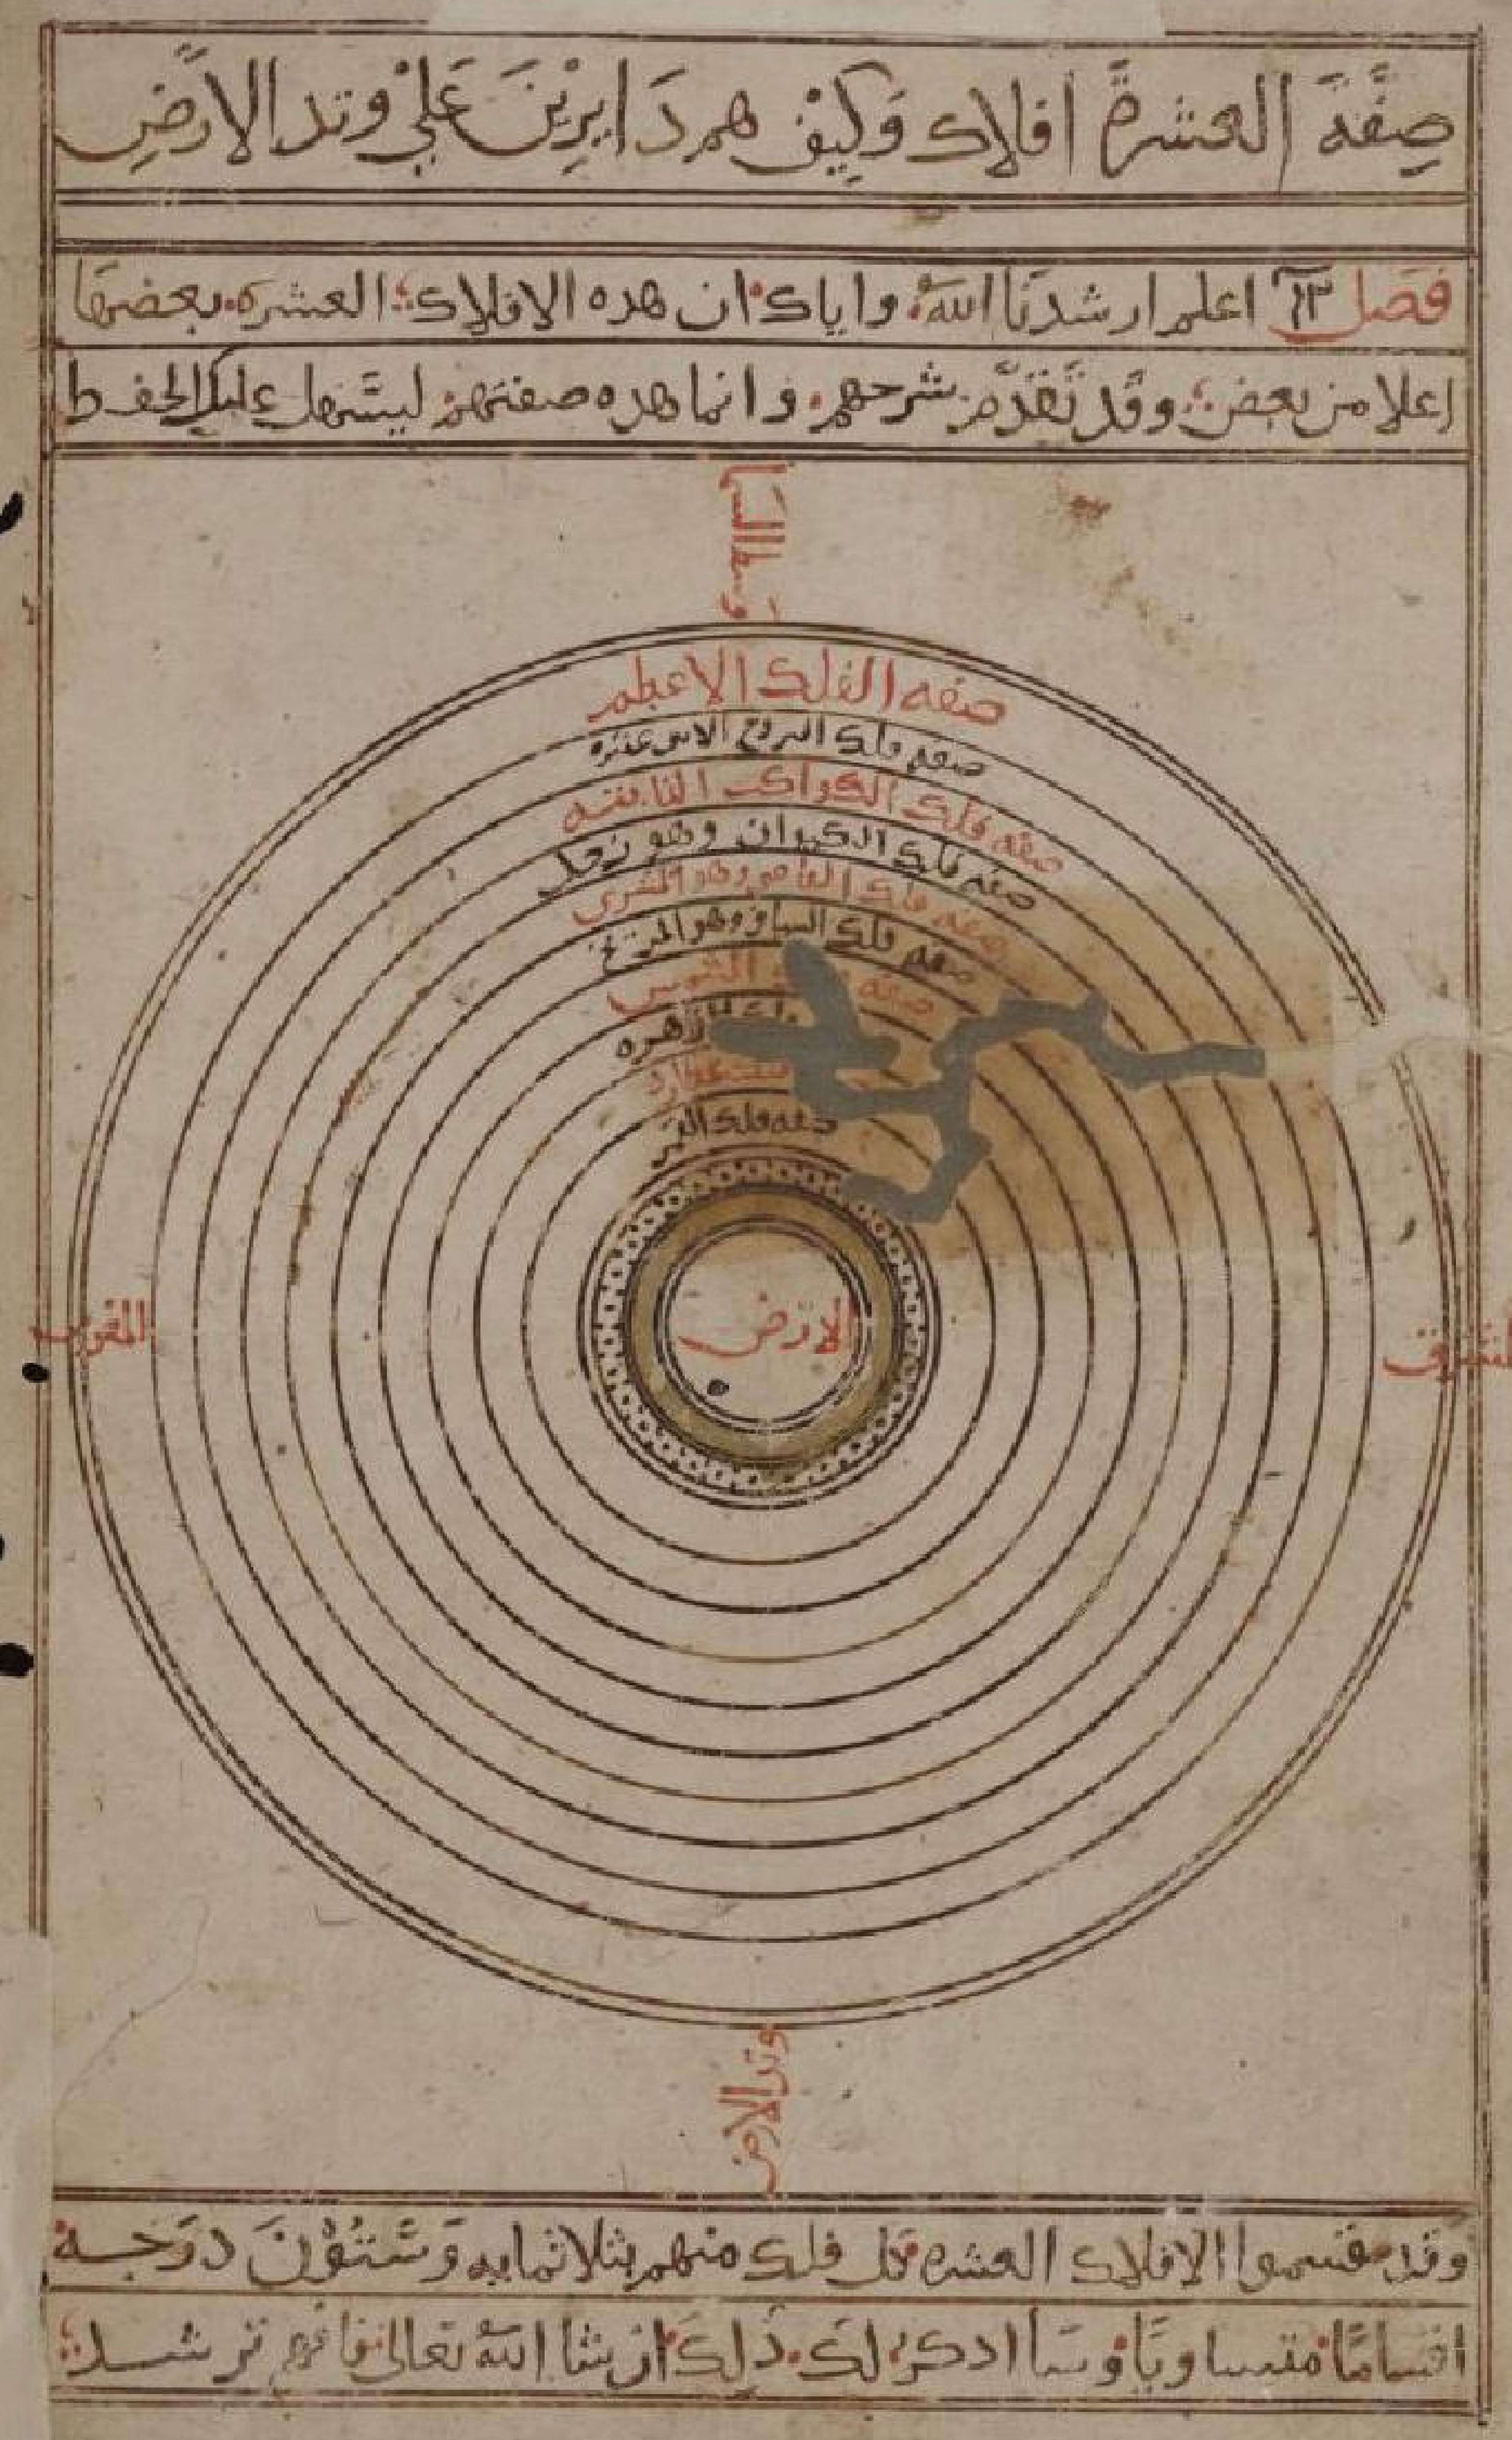 صِفَّةَ العشرةَّ افلاك وَكِيف هم دَايرِينَ عَلىْ وتد الارَضِ
فصَل ١٣ اعلم ارشدَنَا اللهُ واياك ان هده الافلاك العشره بعضهَا
اعلا من بعض وقد تَقَدَّم شرحهم وانما هده صفتهم ليسَهل عليك الحفط
وسط السما
صفه الفلك الاعظم
صفه فلك البروج الاثنى عشره
صفه فلك الكواكب الثابته
صفه فلك الكيوان وهو زحل
صفه فلك وهو المشترى
صفه فلك وهو المريخ
صفه الشمس
فلك الزهره
فلك عطارد
صفه فلك
الارَض
المغرب
المشرق
وتد الارض
وَقد قسموا الافلاك العشره كل فلك منهم بثلاثمايه وَستُوْنَ دَرَجة
اقسامًا متساويًا وسَا ادكرُ لك ذَلِكَ ان شا اللهُ تعالى فافهم ترشد